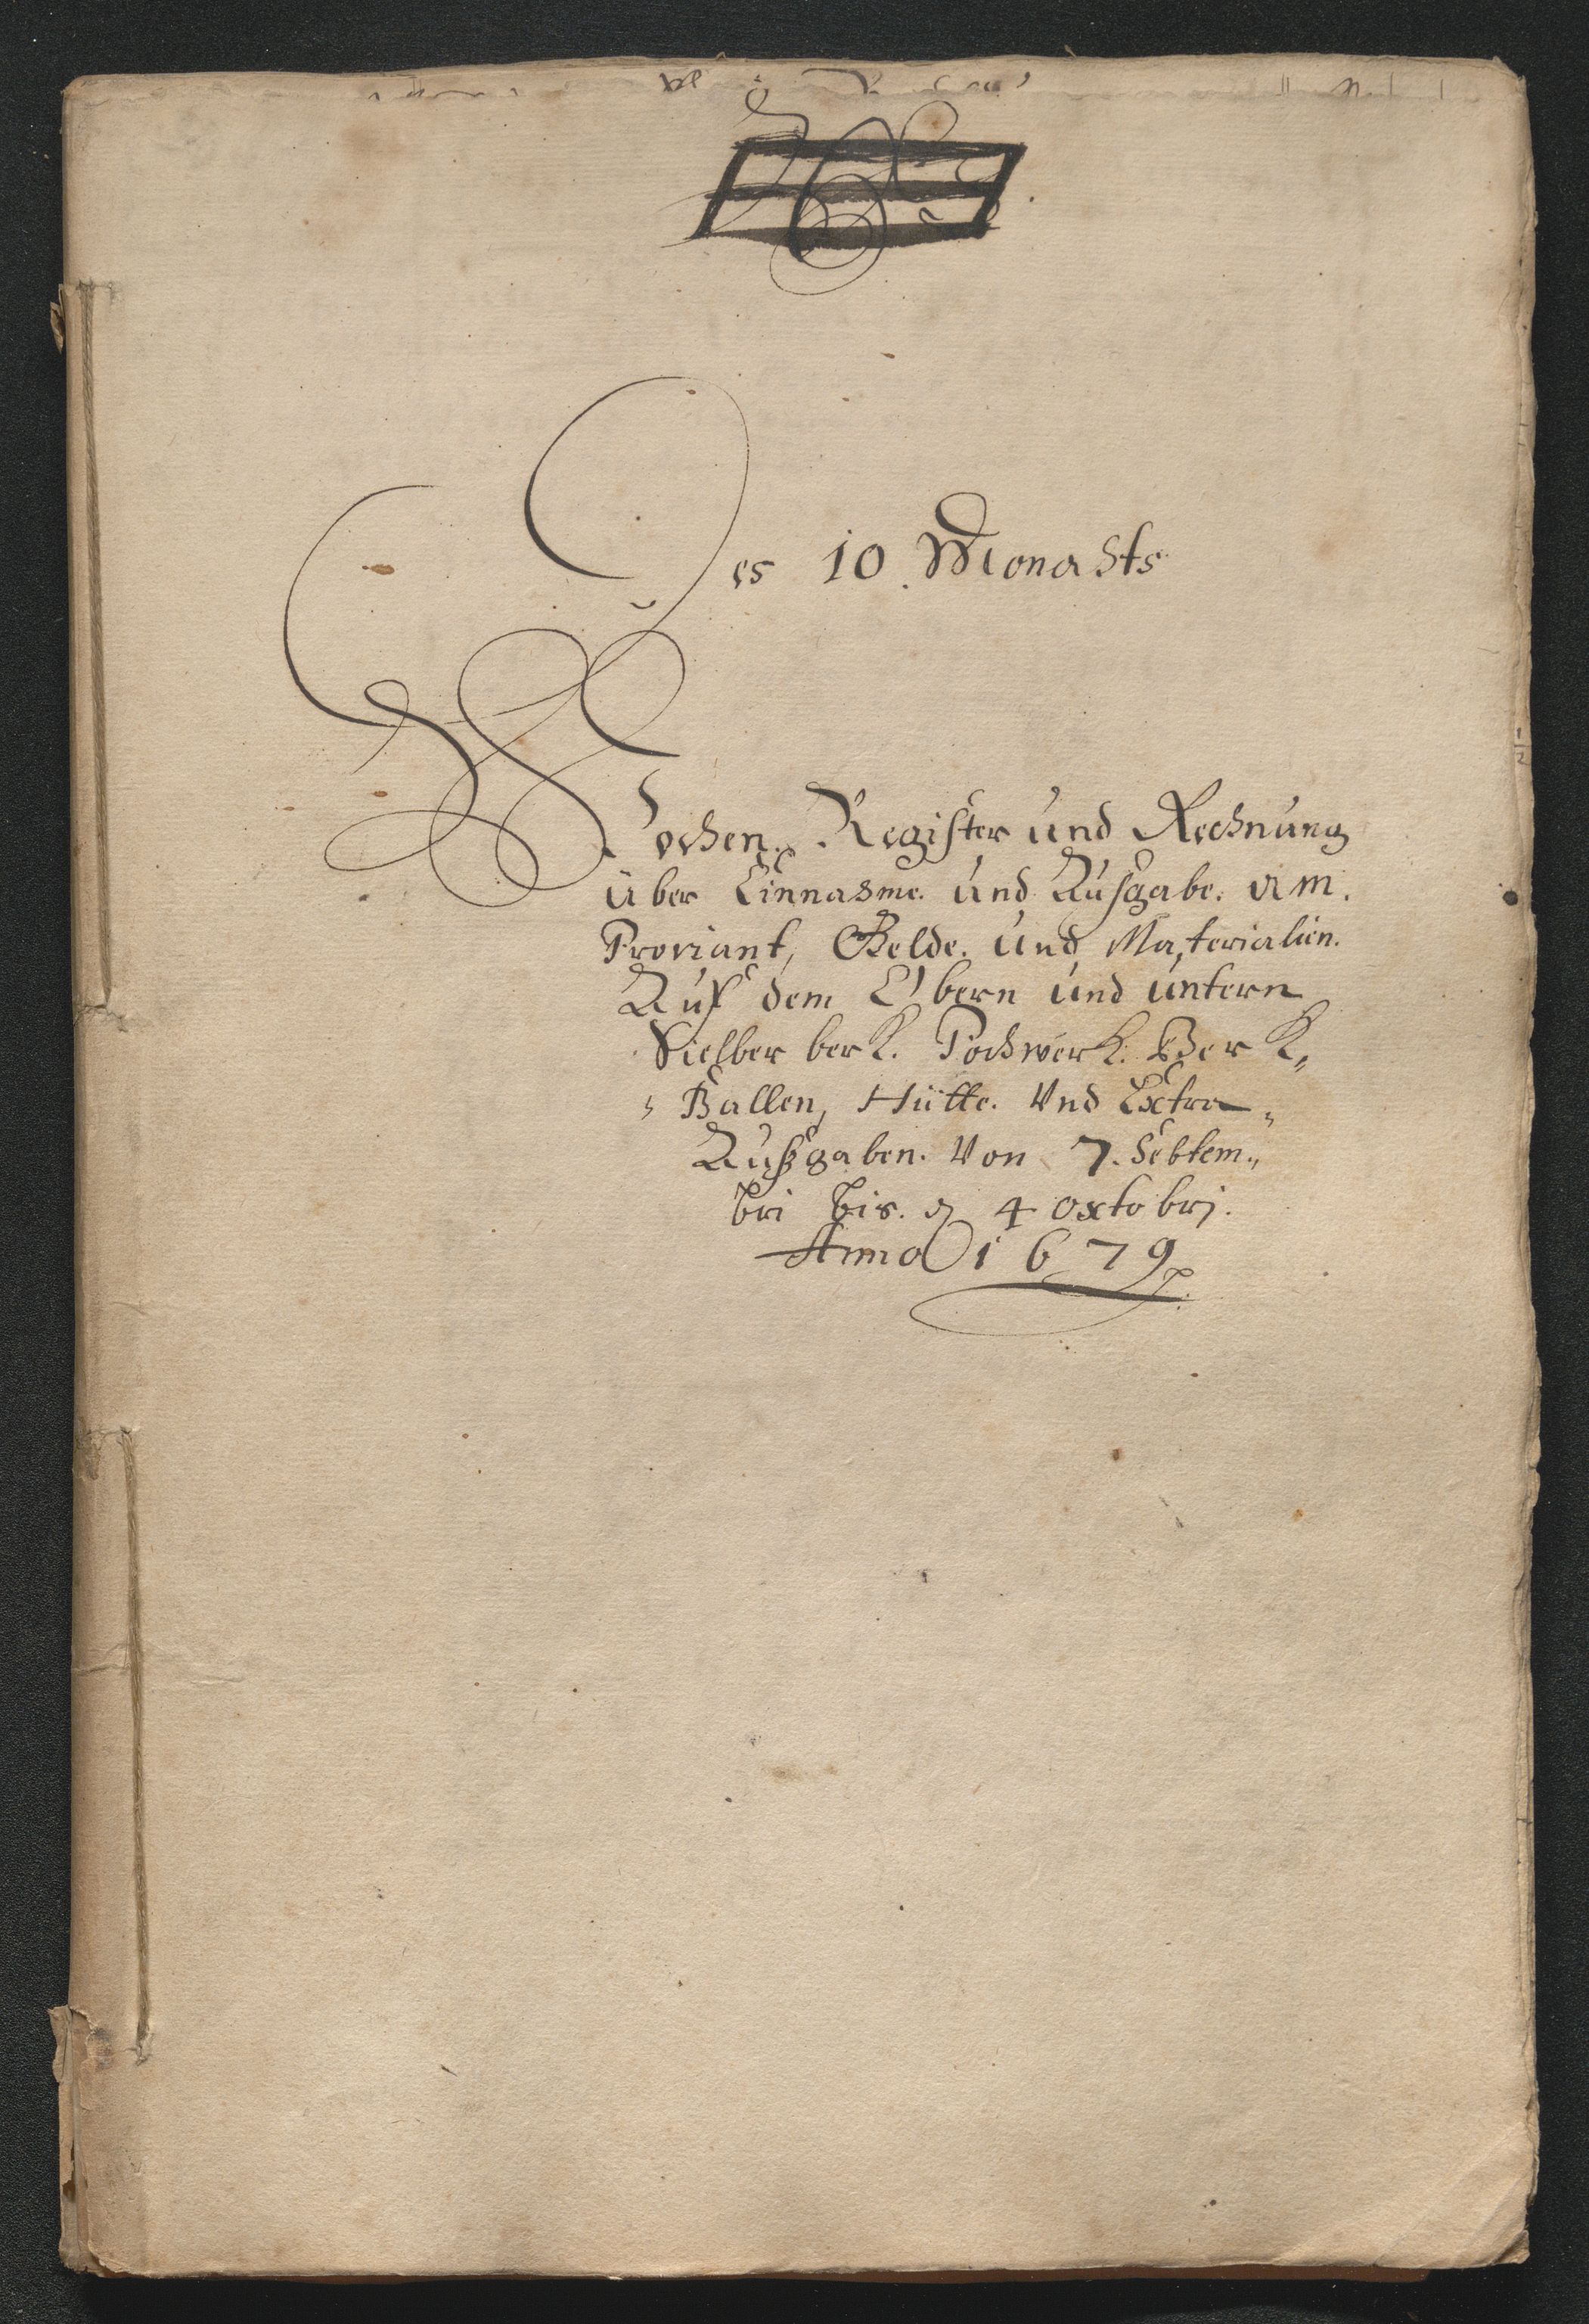 Des 10 Monahts
Wochen Register und Rechnung
über Einnahme und Ausgabe am
Proviant, Gelde und Materialien
Auf dem Obern und untern
Sielber berk. Pochwerk. Berk„
„Ballen, Hütte. Vnd Extra„
Außgaben. Von 7. Sebtem„
bri bis. d 4 oxtobrj.
Anno 1679